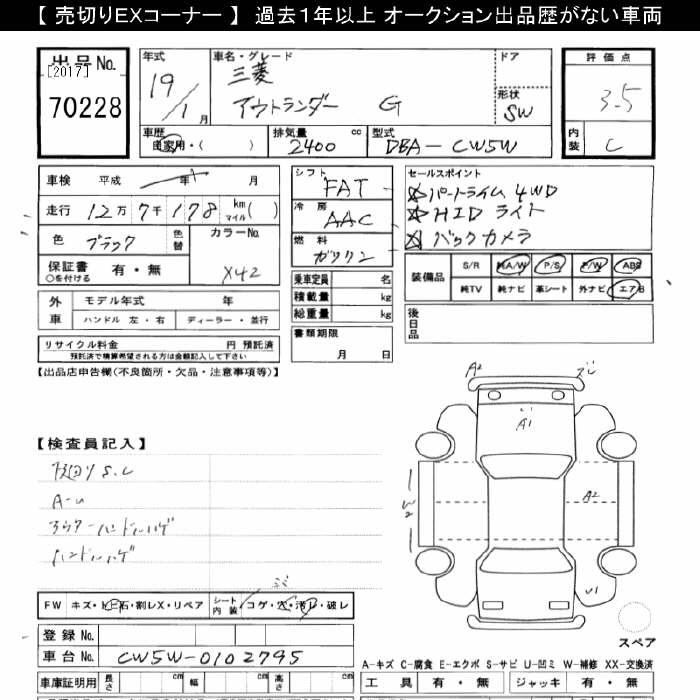 【 売切りEXコーナー 】 過去1年以上 オークション出品歴がない車両
出品No.
[2017]
70228
年式
19/1月
車名・グレード
三菱
アウトランダー G
ドア
形状
SW
評価点
3.5
内装
C
車歴
自家用・( )
排気量 cc
2400
型式
DBA-CW5W
車検 平成 年 月
走行 12万7千178 km マイル( )
色 ブラック 色替
カラーNo.
X42
保証書 有・無
○を付ける
シフト
FAT
冷房
AAC
燃料
ガソリン
乗車定員 名
積載量 kg
総重量 kg
書類期限
月 日
セールスポイント
☆パートタイム 4WD
☆HID ライト
☆バックカメラ
装備品
S/R AA/W P/S P/W ABS
純TV 純ナビ 革シート 外ナビ エアB
後日品
外車
モデル年式 年
ハンドル 左・右 ディーラー・並行
リサイクル料金 円 預託済
預託済で積算希望される方は金額記入して下さい
【出品店申告欄(不良箇所・欠品・注意事項等)】
【検査員記入】
S.C
A-U
アウターハンドルハゲ
ハンドルハゲ
FW キズ・トビ石・割レX・リペア シート内装 コゲ・穴・汚レ・破レ
登録 No.
車台 No. CW5W-0102795
車庫証明用 長さ cm 幅 cm 高さ cm
A2
A1
W2
A2
U1
スペア
A-キズ C-腐食 E-エクボ S-サビ U-凹ミ W-補修 XX-交換済
工具 有・無 ジャッキ 有・無